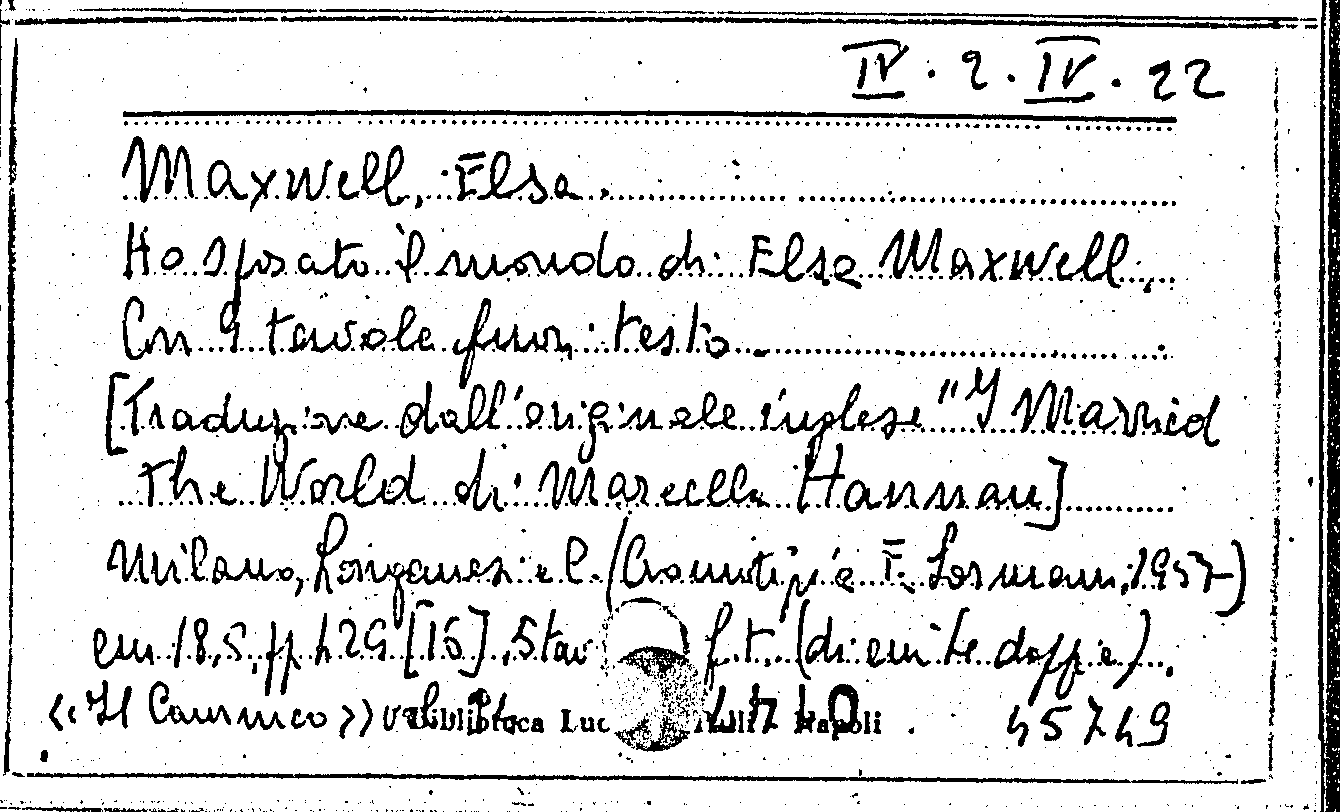 IV. 2. IV. 22
Maxwell, Elsa.
Ho sposato il mondo di Elsa Maxwell,
Con 9 tavole fuori testo.
[Traduzione dall'originale inglese "I Married
The World di Marcella Hannau]
Milano, Longanesi e C. (Cromotipia E. Sormani, 1957)
cm 18,5, pp 429 [15], 5 tav f.t. (di cui 4 doppie).
«Il Cammeo») Biblioteca Napoli 45749